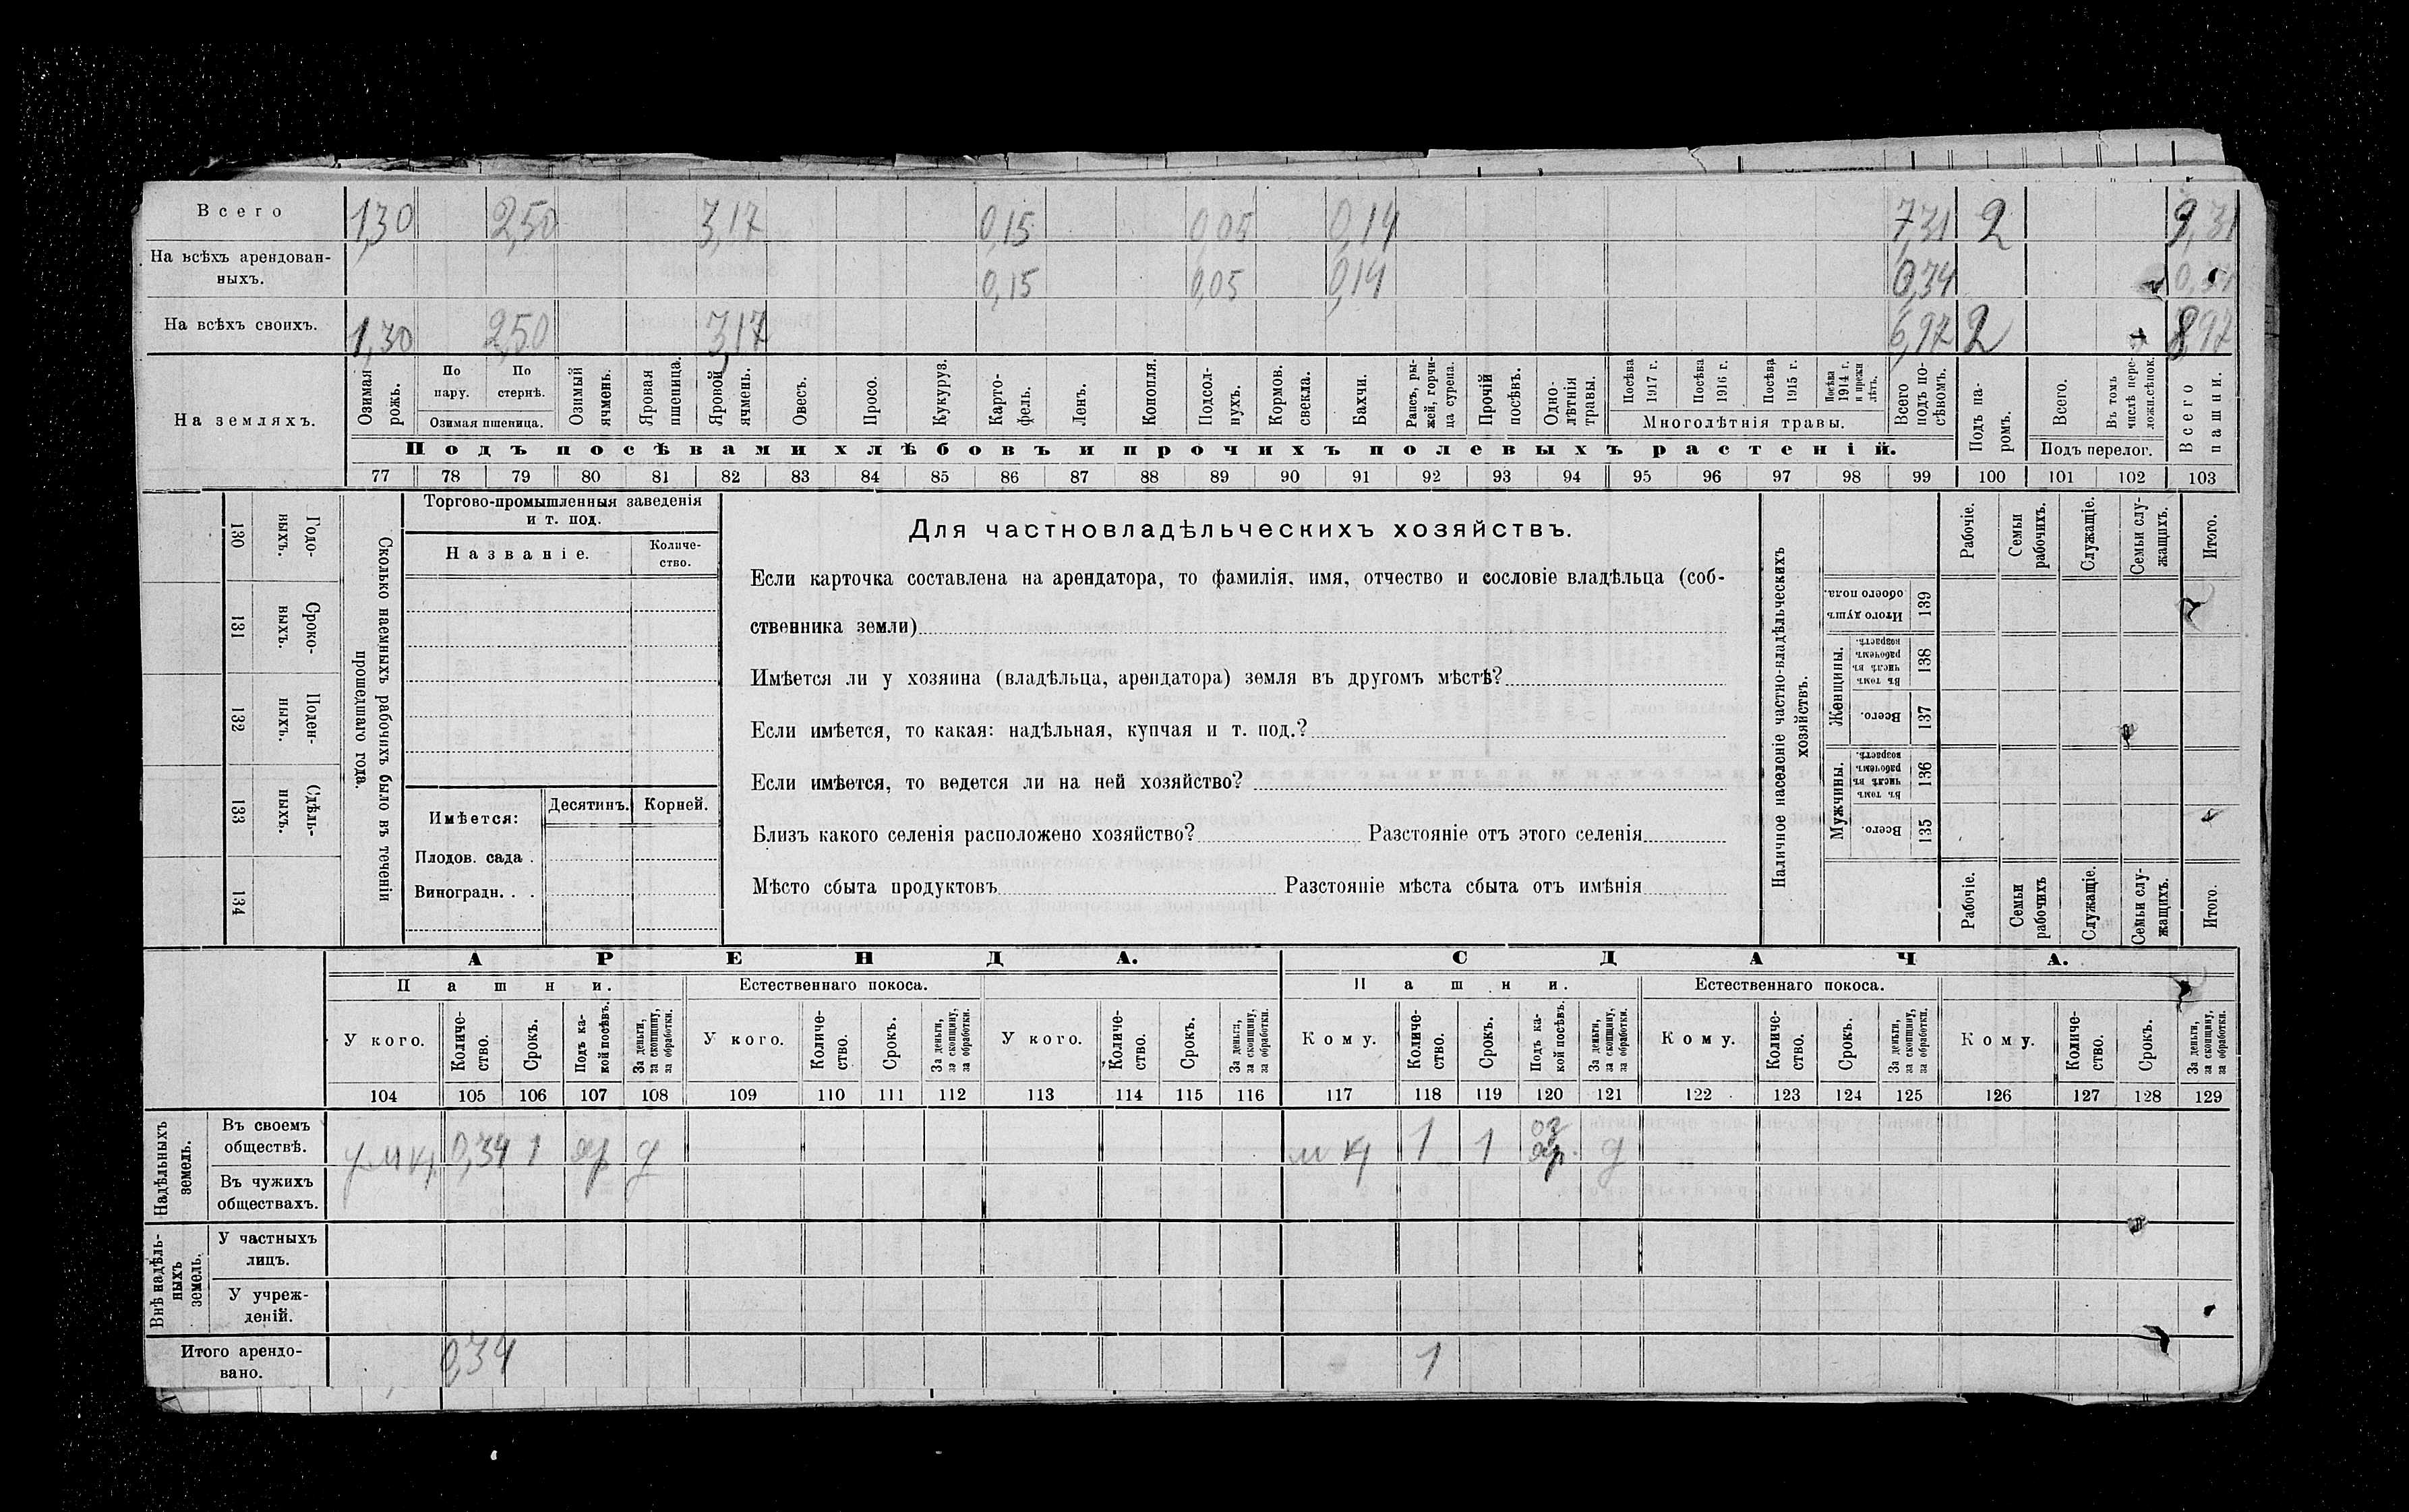 Всего 1,30 2,50 3,17 0,15 0,05 0,14 7,31 2 9,31
На всѣхъ арендован-
ныхъ. 0,15 0,05 0,14 0,34 0,34
На всѣхъ своихъ. 1,30 2,50 3,17 6,97 2 8,97
На земляхъ.
Озимая рожь.
По пару.
По стернѣ.
Озимая пшеница.
Озимый ячмень.
Яровая пшеница.
Яровой ячмень.
Овесъ.
Просо.
Кукуруз.
Карто-
фель.
Ленъ.
Конопля.
Подсол-
нухъ.
Кормов. свекла.
Бахчи.
Рапсъ, ры-
жей, горчи-
ца сурепа.
Прочій посѣвъ.
Одно-
лѣтнія травы.
Посѣва 1917 г.
Посѣва 1916 г.
Посѣва 1915 г.
Посѣва 1914 г. и прежн лѣтъ.
Многолѣтнія травы.
Всего подъ по-
сѣвомъ.
Подъ па-
ромъ.
Всего.
Въ томъ числѣ пере-
ложн.сѣнок.
Подъ перелог.
Всего пашни.
Подъ посѣвами хлѣбовъ и прочихъ полевыхъ растеній.
77 78 79 80 81 82 83 84 85 86 87 88 89 90 91 92 93 94 95 96 97 98 99 100 101 102 103
Годо-
выхъ.
130
Сроко-
выхъ.
131
Поден-
ныхъ.
132
Сдѣль-
ныхъ.
133
134
Сколько наемныхъ рабочихъ было въ теченіи
прошедшаго года.
Торгово-промышленныя заведенія
и т. под.
Названіе.
Количе-
ство.
Имѣется:
Десятинъ.
Корней.
Плодов. сада .
Виноградн. . .
Для частновладѣльческихъ хозяйствъ.
Если карточка составлена на арендатора, то фамилія, имя, отчество и сословіе владѣльца (соб-
ственника земли)
Имѣется ли у хозяина (владѣльца, арендатора) земля въ другомъ мѣстѣ?
Если имѣется, то какая: надѣльная, купчая и т. под.?
Если имѣется, то ведется ли на ней хозяйство?
Близъ какого селенія расположено хозяйство? Разстояніе отъ этого селенія
Мѣсто сбыта продуктовъ Разстояніе мѣста сбыта отъ имѣнія
Наличное населеніе частно-владѣльческихъ
хозяйствъ.
Рабочіе.
Семьи рабочихъ.
Служащіе.
Семьи слу-
жащихъ.
Итого.
Итого душъ обоего пола.
139
Женщины.
Въ томъ числѣ въ рабочемъ возрастѣ.
138
Всего.
137
Мужчины.
Въ томъ числѣ въ рабочемъ возрастѣ.
136
Всего.
135
Рабочіе.
Семьи рабочихъ
Служащіе.
Семьи слу-
жащихъ.
Итого.
АРЕНДА. СДАЧА.
Пашни. Естественнаго покоса. Пашни. Естественнаго покоса.
У кого.
Количе-
ство.
Срокъ.
Подъ ка-
кой посѣвъ.
За деньги, за скопщину, за обработки.
У кого.
Количе-
ство.
Срокъ.
За деньги, за скопщину, за обработки.
У кого.
Количе-
ство.
Срокъ.
За деньги, за скопщину, за обработки.
Кому.
Количе-
ство.
Срокъ.
Подъ ка-
кой посѣвъ.
За деньги, за скопщину, за обработки.
Кому.
Количе-
ство.
Срокъ.
За деньги, за скопщину, за обработки.
Кому.
Количе-
ство.
Срокъ.
За деньги, за скопщину, за обработки.
104 105 106 107 108 109 110 111 112 113 114 115 116 117 118 119 120 121 122 123 124 125 126 127 128 129
Надѣльныхъ
земель.
Въ своемъ
обществѣ. 0,34 1 яр д 1 1 оз яр. д
Въ чужихъ
обществахъ.
Внѣ надѣль-
ныхъ
земель.
У частныхъ
лицъ.
У учреж-
деній.
Итого арендо-
вано. 0,34 1